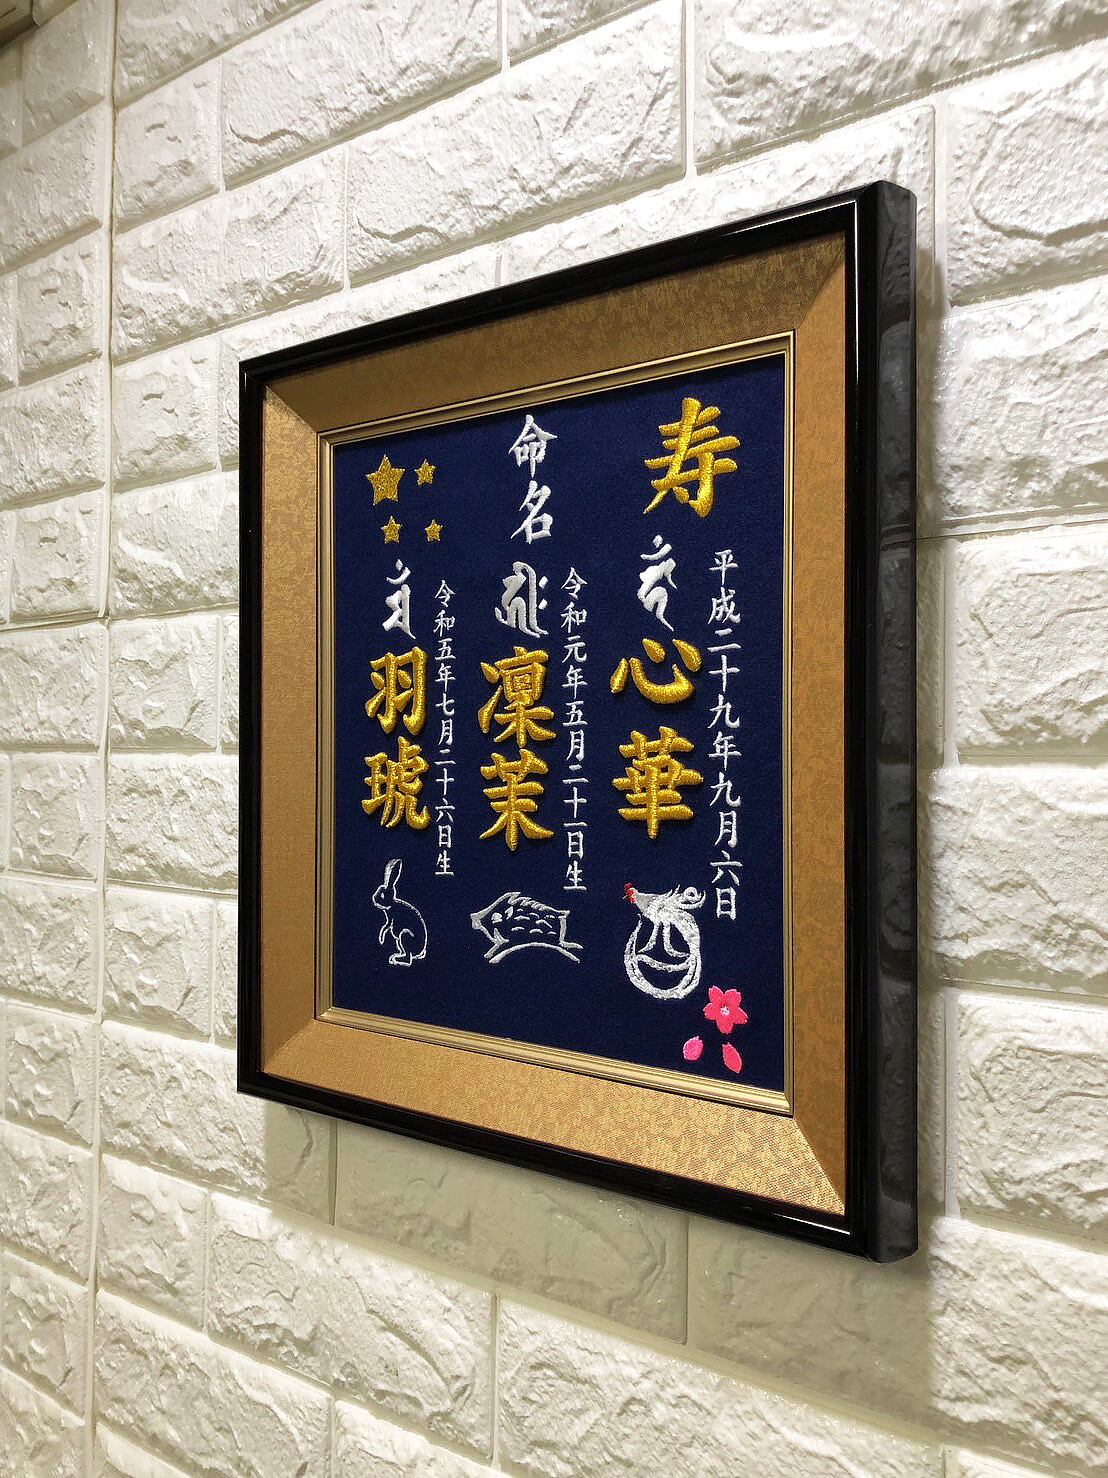 寿
平成二十九年九月六日
心華
命名
令和元年五月二十一日生
凜茉
令和五年七月二十六日生
羽琥